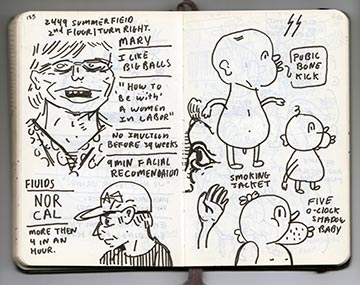 135
2449 SUMMERFIELD
2ND FLOOR/TURN RIGHT.
MARY
I LIKE
BIG BALLS
"HOW TO
'BE WITH'
A WOMEN
IN LABOR"
NO INUCTION
BEFORE 39 WEEKS
9 MIN FACIAL
RECOMENDATION
FLUIDS
NOR
CAL
MORE THEN
4 IN AN
HOUR.
PUBIC
BONE
KICK
SMOKING
JACKET
FIVE
O-CLOCK
SHADOW
BABY